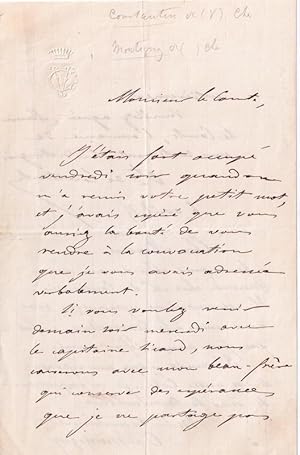 Constantin de (V). Cte
Montigny de, Cte
Monsieur le Comte,
J'étais fort occupé
vendredi soir quand on
m'a remis votre petit mot,
et j'avais espéré que vous
auriez la bonté de vous
rendre à la convocation
que je vous avais adressée
verbalement.
Si vous voulez venir
demain soir mercredi avec
le capitaine Picard, nous
causerons avec mon beau-frère
qui conserve des espérances
que je ne partage pas.